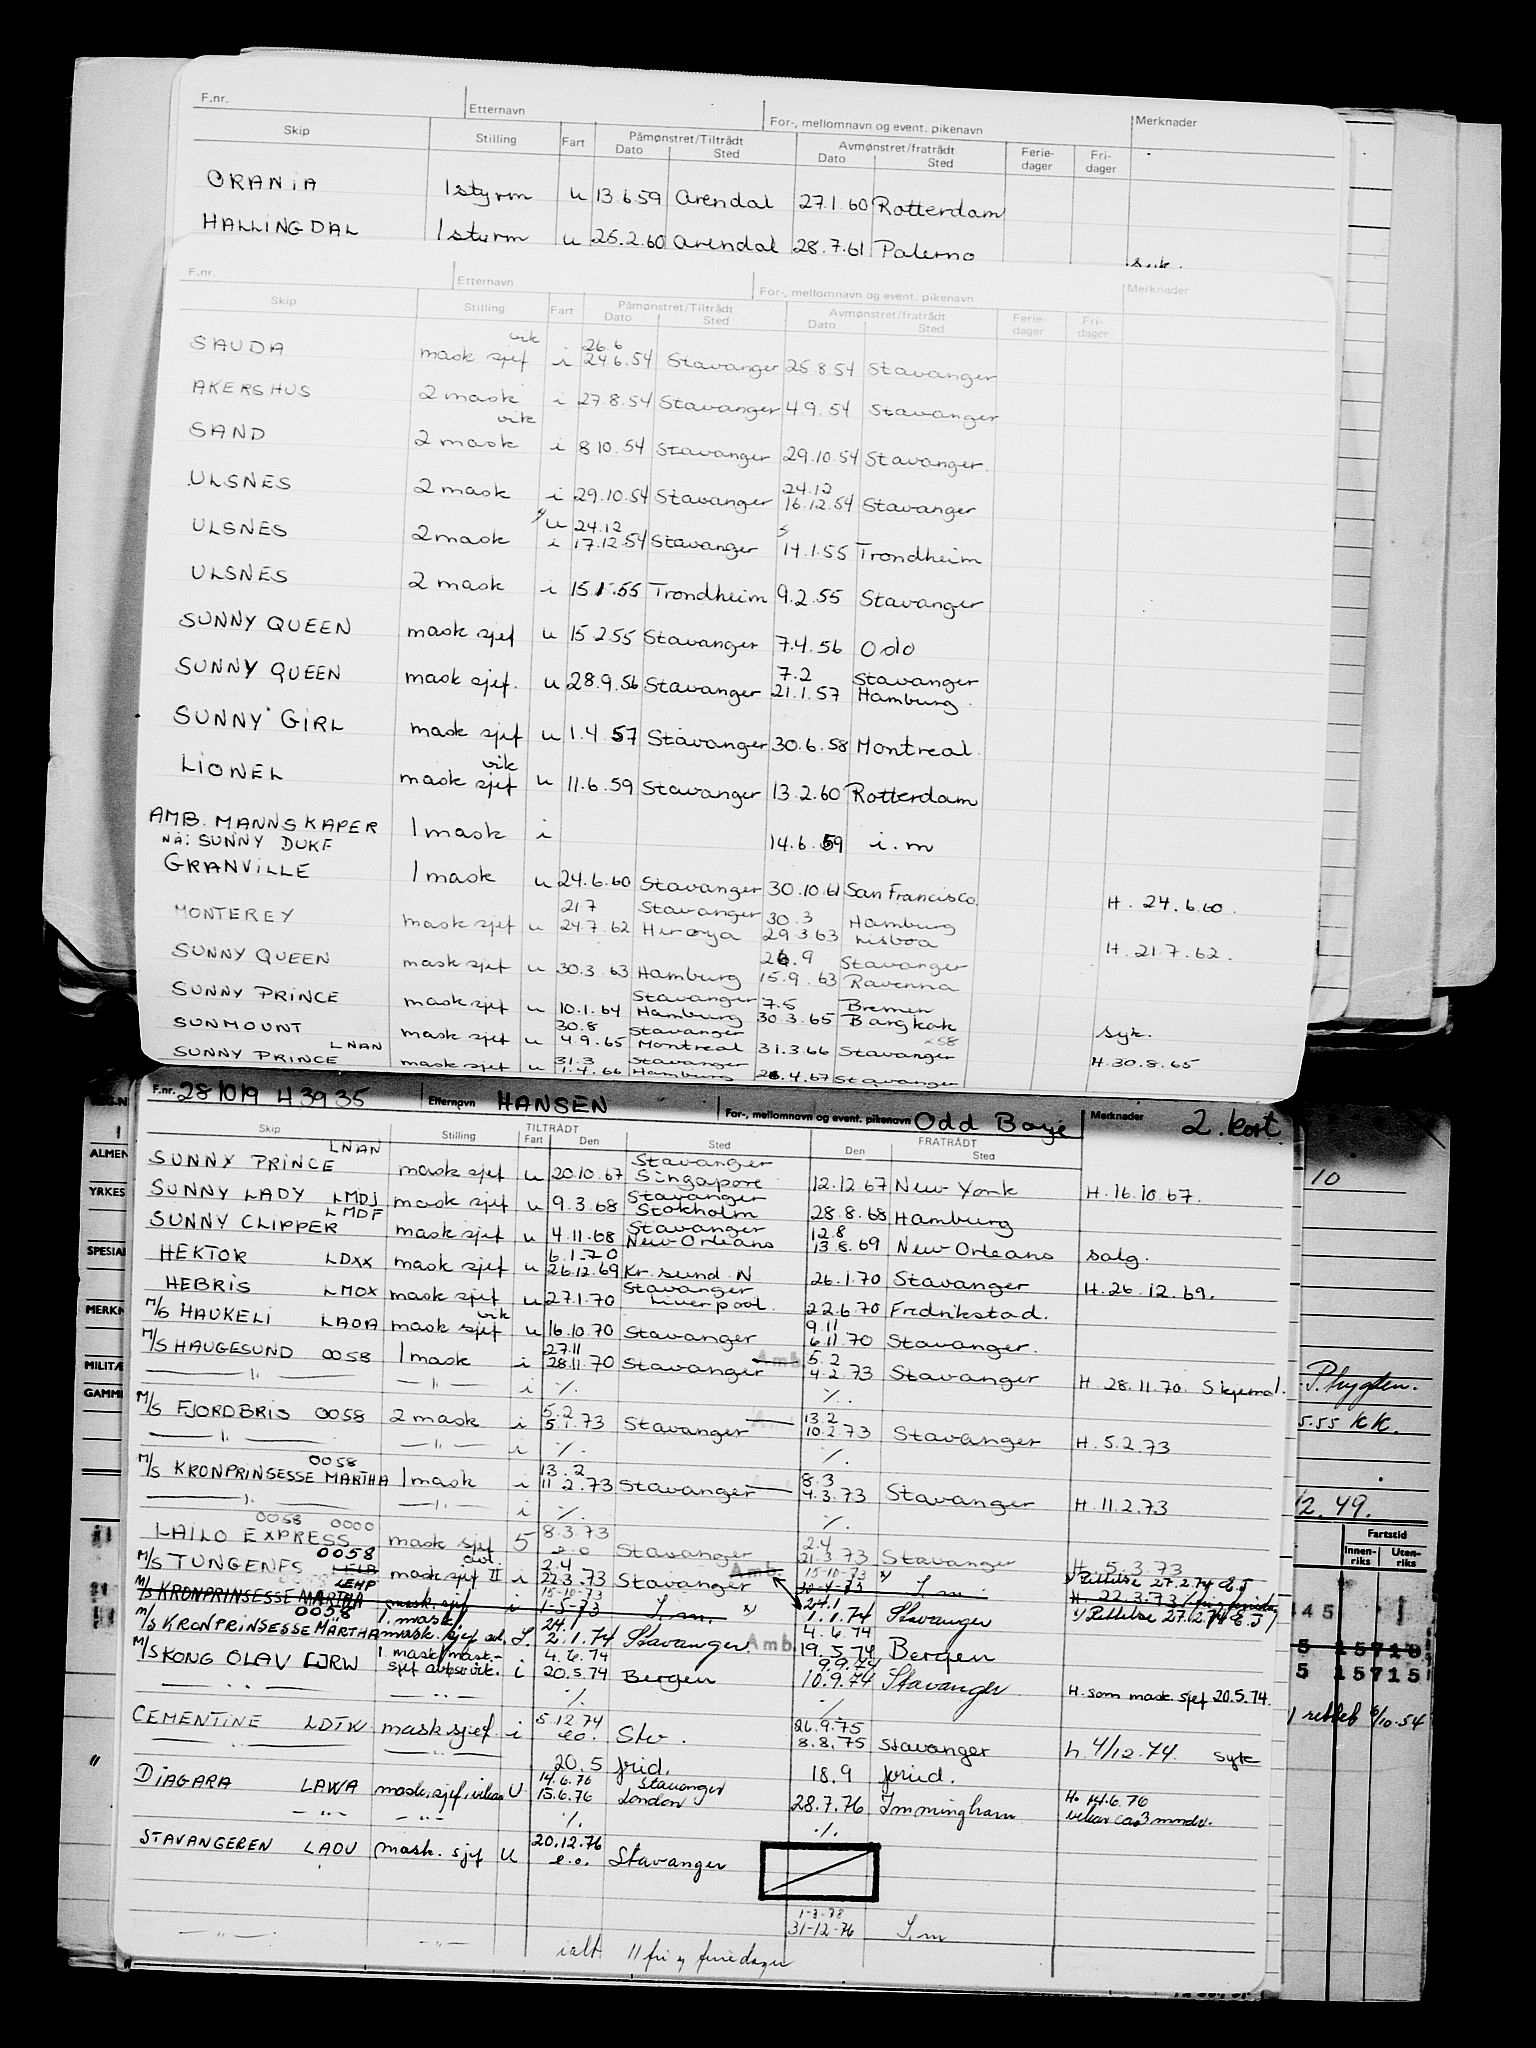 F.nr. Etternavn For-, mellomnavn og event. pikenavn Merknader
Skip Stilling Fart Påmønstret/Tiltrådt Avmønstret/fratrådt Ferie- Fri-
Dato Sted Dato Sted dager dager
ORANIA 1 styrm u 13.6.59 Arendal 27.1.60 Rotterdam
HALLINGDAL 1 styrm u 25.2.60 Arendal 28.7.61 Palermo syk.
F.nr. Etternavn For-, mellomnavn og event. pikenavn Merknader
Skip Stilling Fart Påmønstret/Tiltrådt Avmønstret/fratrådt Ferie- Fri-
Dato Sted Dato Sted dager dager
vik 26 6
SAUDA mask sjef i 24 6.54 Stavanger 25.8.54 Stavanger
AKERSHUS 2 mask i 27.8.54 Stavanger 4 9. 54 Stavanger
vik
SAND 2 mask i 8 10. 54 Stavanger 29.10.54 Stavanger.
24.12
ULSNES 2 mask i 29.10.54 Stavanger 16.12.54 Stavanger
u 24.12
ULSNES 2 mask i 17.12.54 Stavanger 14.1.55 Trondheim
ULSNES 2 mask i 15.1.55 Trondheim 9.2.55 Stavanger
SUNNY QUEEN mask sjef u 15 2 55 Stavanger 7.4.56 Odo
7.2 Stavanger
SUNNY QUEEN mask sjef. u 28.9.56 Stavanger 21.1.57 Hamburg.
SUNNY GIRL mask sjef u 1.4 57 Stavanger 30.6.58 Montreal.
vik
LIONEL mask sjef u 11.6.59 Stavanger 13.2.60 Rotterdam
AMB. MANNSKAPER 1 mask i 14.6.59 i.m
NÅ: SUNNY DUKE
GRANVILLE 1 mask u 24.6.60 Stavanger 30.10.61 San Francisco. H. 24.6.60.
21 7 Stavanger 30.3 Hamburg
MONTEREY mask sjef u 24.7.62 Herøya 29.3.63 Lisboa H. 21.7.62.
26.9 Stavanger
SUNNY QUEEN mask sjef u 30.3.63 Hamburg 15.9.63 Ravenna
Stavanger 7.5 Bremen
SUNNY PRINCE mask sjef u 10.1.64 Hamburg 30.3.65 Bangkok syk.
30.8 Stavanger
SUNMOUNT mask sjef u 4.9.65 Montreal 31.3.66 Stavanger H.30.8.65
LNAN 31.3 Stavanger
SUNNY PRINCE mask sjef u 1.4.66 Hamburg 26.4.67 Stavanger
F.nr. 281019 43935 Etternavn HANSEN For-, mellomnavn og event. pikenavn Odd Boye Merknader 2. kort.
Skip Stilling TILTRÅDT FRATRÅDT
Fart Den Sted Den Sted
LNAN Stavanger
SUNNY PRINCE mask sjef u 20.10.67 Singapore 12.12.67 New York H. 16.10.67.
Stavanger
SUNNY LADY LMDJ mask sjef u 9.3.68 Stokholm 28.8.68 Hamburg
LMDF Stavanger 12.8
SUNNY CLIPPER mask sjef u 4.11.68 New Orleans 13.8.69 New Orleans salg.
6.1.70
HEKTOR LDXX mask sjef u 26.12.69 Kr.sund N 26.1.70 Stavanger H.26.12.69.
Stavanger
HEBRIS LMOX mask sjef u 27.1.70 Liverpool. 22.6.70 Fredrikstad.
vik 9.11
M/S HAUKELI LAOA mask sjef u 16.10.70 Stavanger 6.11.70 Stavanger.
27.11 5.2
M/S HAUGESUND 0058 1 mask i 28.11.70 Stavanger Amb. 4.2.73 Stavanger H. 28.11.70. Skjemat.
— " — — " — i ./. ./.
5.2 13.2
M/S FJORDBRIS 0058 2 mask i 5.1.73 Stavanger 10.2.73 Stavanger H. 5.2.73
— " — — " — i ./. ./.
0058 13.2 8.3
M/S KRONPRINSESSE MÄRTHA 1 mask i 11 2.73 Stavanger 4.3.73 Stavanger H. 11.2.73
— " — — " — i ./. ./.
0058 0000 8.3.73 2.4
LAILO EXPRESS mask sjef 5 e.o Stavanger 21.3.73 Stavanger H. 5.3.73
0058 avl. 2.4 Amb. 15-10-73
M/S TUNGENES mask sjef II i 22.3.73 Stavanger I m. Rettelse 27.2.74
LEHP 15-10-73 H. 22.3.73
M/S KRONPRINSESSE MÄRTHA mask. sjef i 1-5-73 I m. 24.1
0058 1. mask/ 24.1 1.1.74 Stavanger Rettelse 27.2.74
M/S KRONPRINSESSE MÄRTHA mask. sjef avl. 2.1.74 Stavanger Amb. 4.6.74
1. mask/mask.- 4.6.74 19.5.74 Bergen
M/S KONG OLAV LJRW sjef avløsvik. i 20.5.74 Bergen 9.9.74
10.9.74 Stavanger H. som mask. sjef 20.5.74.
— " — — " — ./. ./.
5.12.74 26.9.75
CEMENTINE LDTW mask sjef. i e.o. Stv. 8.8.75 Stavanger h. 4/12.74. syk
— " — — " — 20.5 frid. 18.9 fried.
14.6.76 Stavanger H. 14.6.76
DIAGARA LAWA mask.sjef, vikar U 15.6.76 London 28.7.76 Immingham vikar ca 3 mndr.
— " — — " — ./. ./.
20.12.76
STAVANGEREN LAOU mask. sjef U e.o. Stavanger
1-3-78
— " — — " — 31-12-76 I.m
ialt 11 fri og feriedager
REG.N
ALMEN
YRKES
SPESIAL
MERKN
MILITÆ
GAMM
10
P. hygten.
5.55 KK.
12. 49.
Fartstid
Innen- Uten-
riks riks
4 4 5
5 15718
5 15715